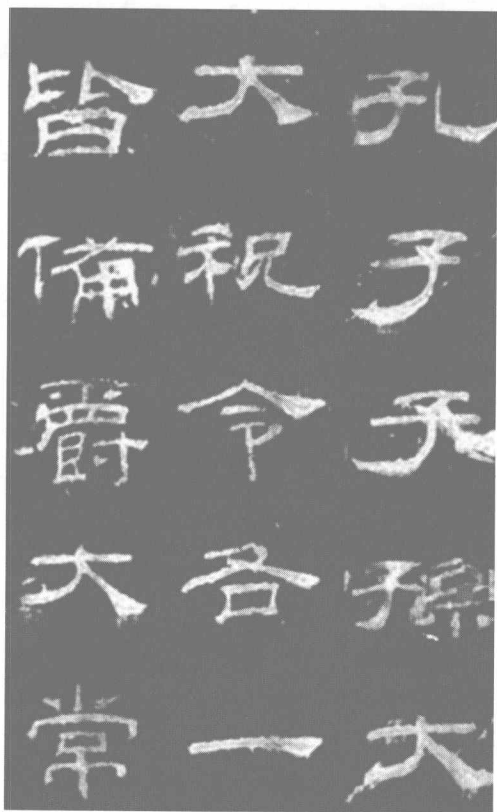 孔子子孫大
大祝令各一
皆備爵大常